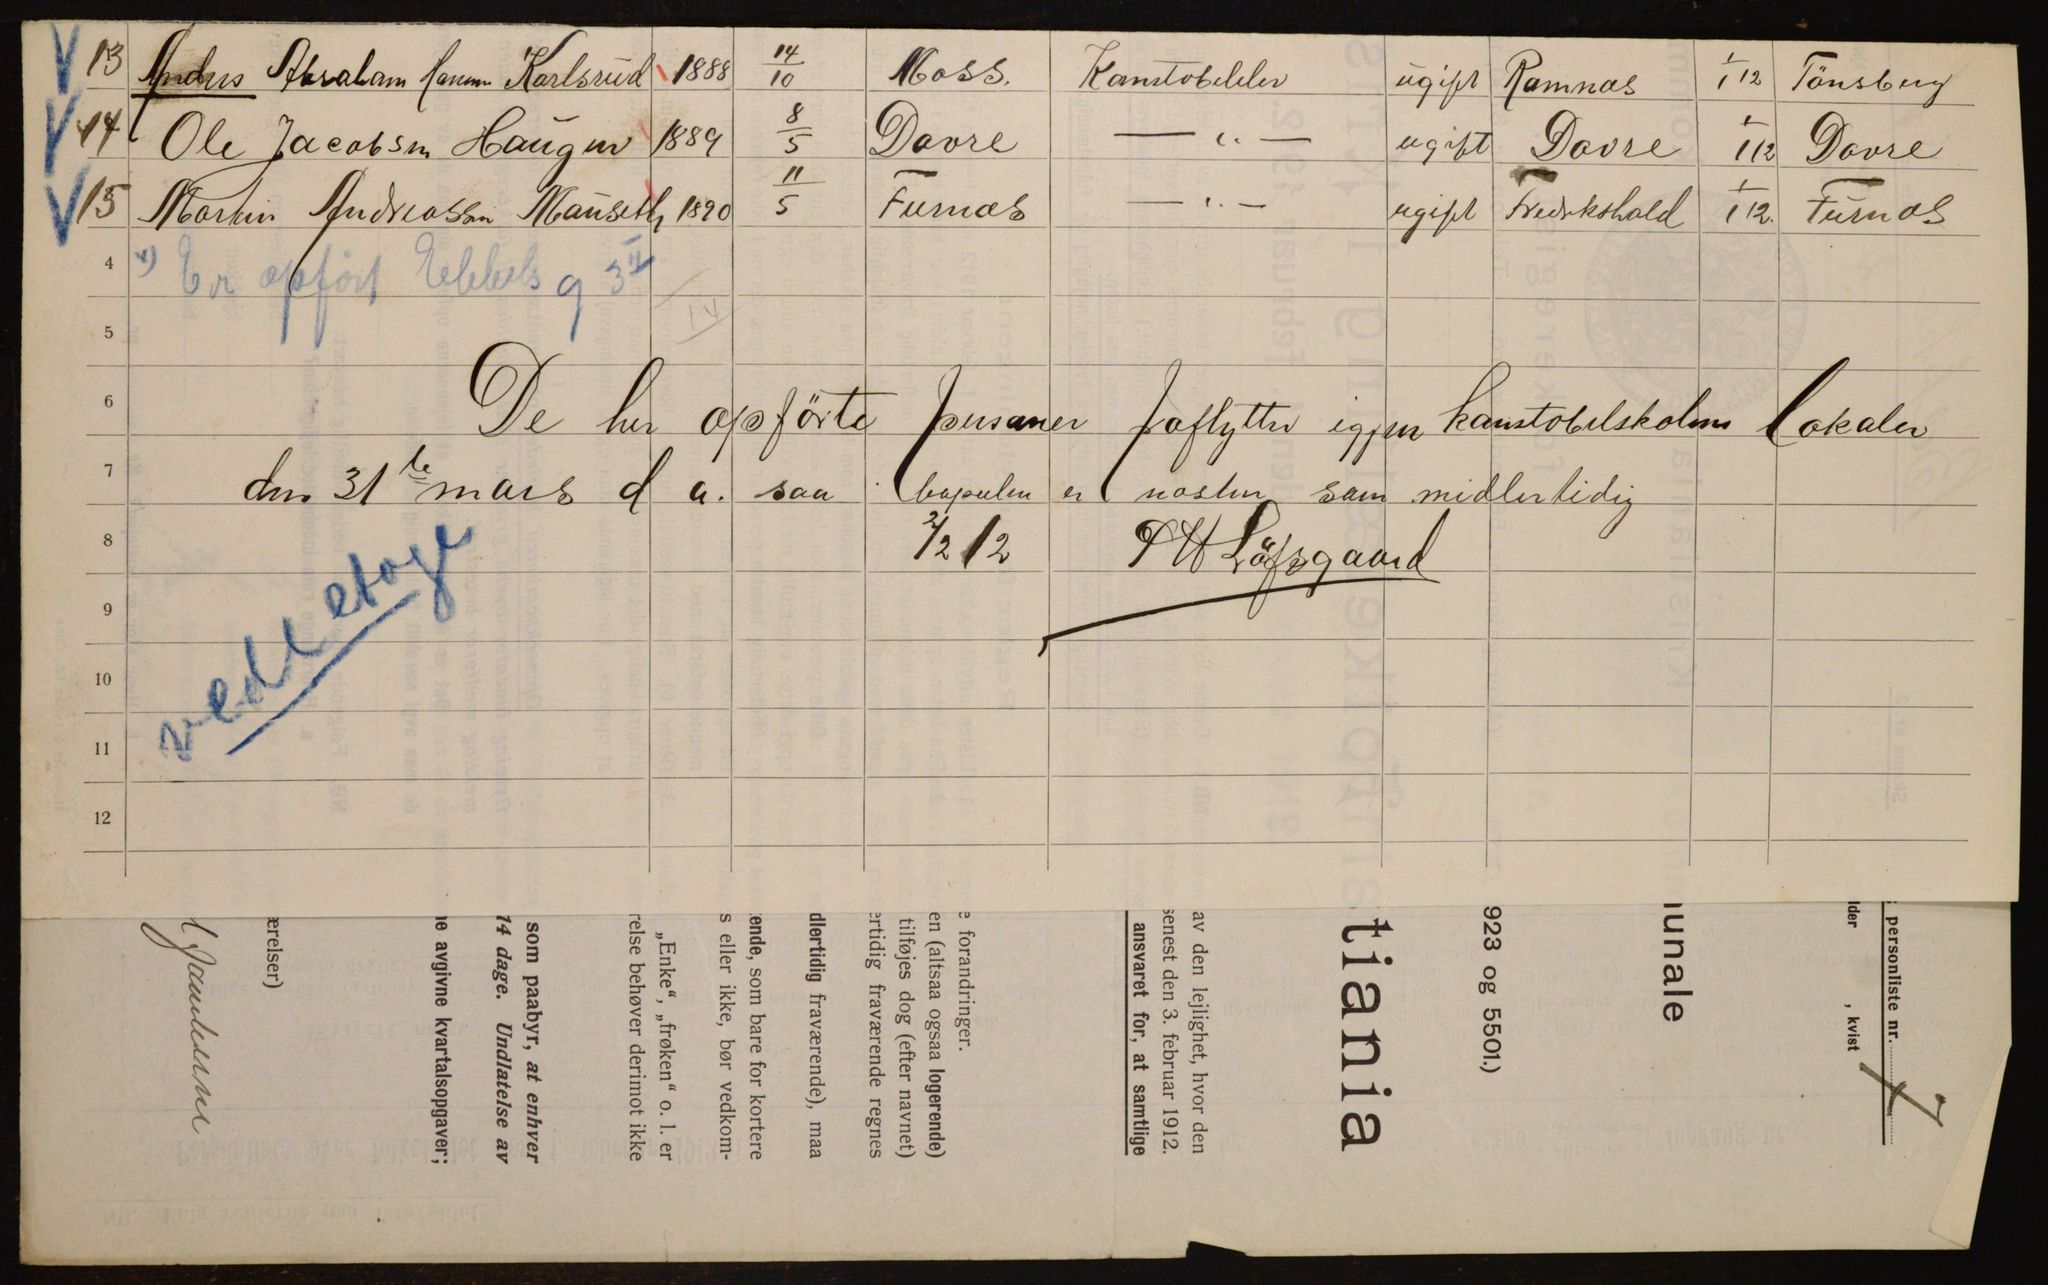 13 Anders Abraham Hansen Karlsrud 1888 14/10 Moss. Kanstobelelev ugift Ramnas 1/1 12 Tönsberg
14 Ole Jacobsen Haugen 1889 8/5 Dovre — " — ugift Dovre 1/1 12 Dovre
15 Martin Andreassen Mauseth 1890 11/5 Furnes — " — ugift Fredrikshald 1/1 12. Furnes
4 *) Er opført Ebbels g 3 II
5
6 De her opförte personer fraflytter igjen Kanstobelskolens Lokaler
7 den 31te mars d a. saa bopælen er næsten som midlertidig
8 2/2 12 Löfsgaard
vedl etage
9
10
11
12
ærelser)
ne avgivne kvartalsopgaver;
14 dage. Undlatelse av
som paabyr, at enhver
relse behøver derimot ikke
„Enke“, „frøken“ o. l. er
s eller ikke, bør vedkom-
ende, som bare for kortere
dlertidig fraværende), maa
ertidig fraværende regnes
tilføjes dog (efter navnet)
en (altsaa ogsaa logerende)
e forandringer.
ansvaret for, at samtlige
senest den 3. februar 1912.
av den lejlighet, hvor den
tiania
923 og 5501.)
unale
lder , kvist
personliste nr. 7